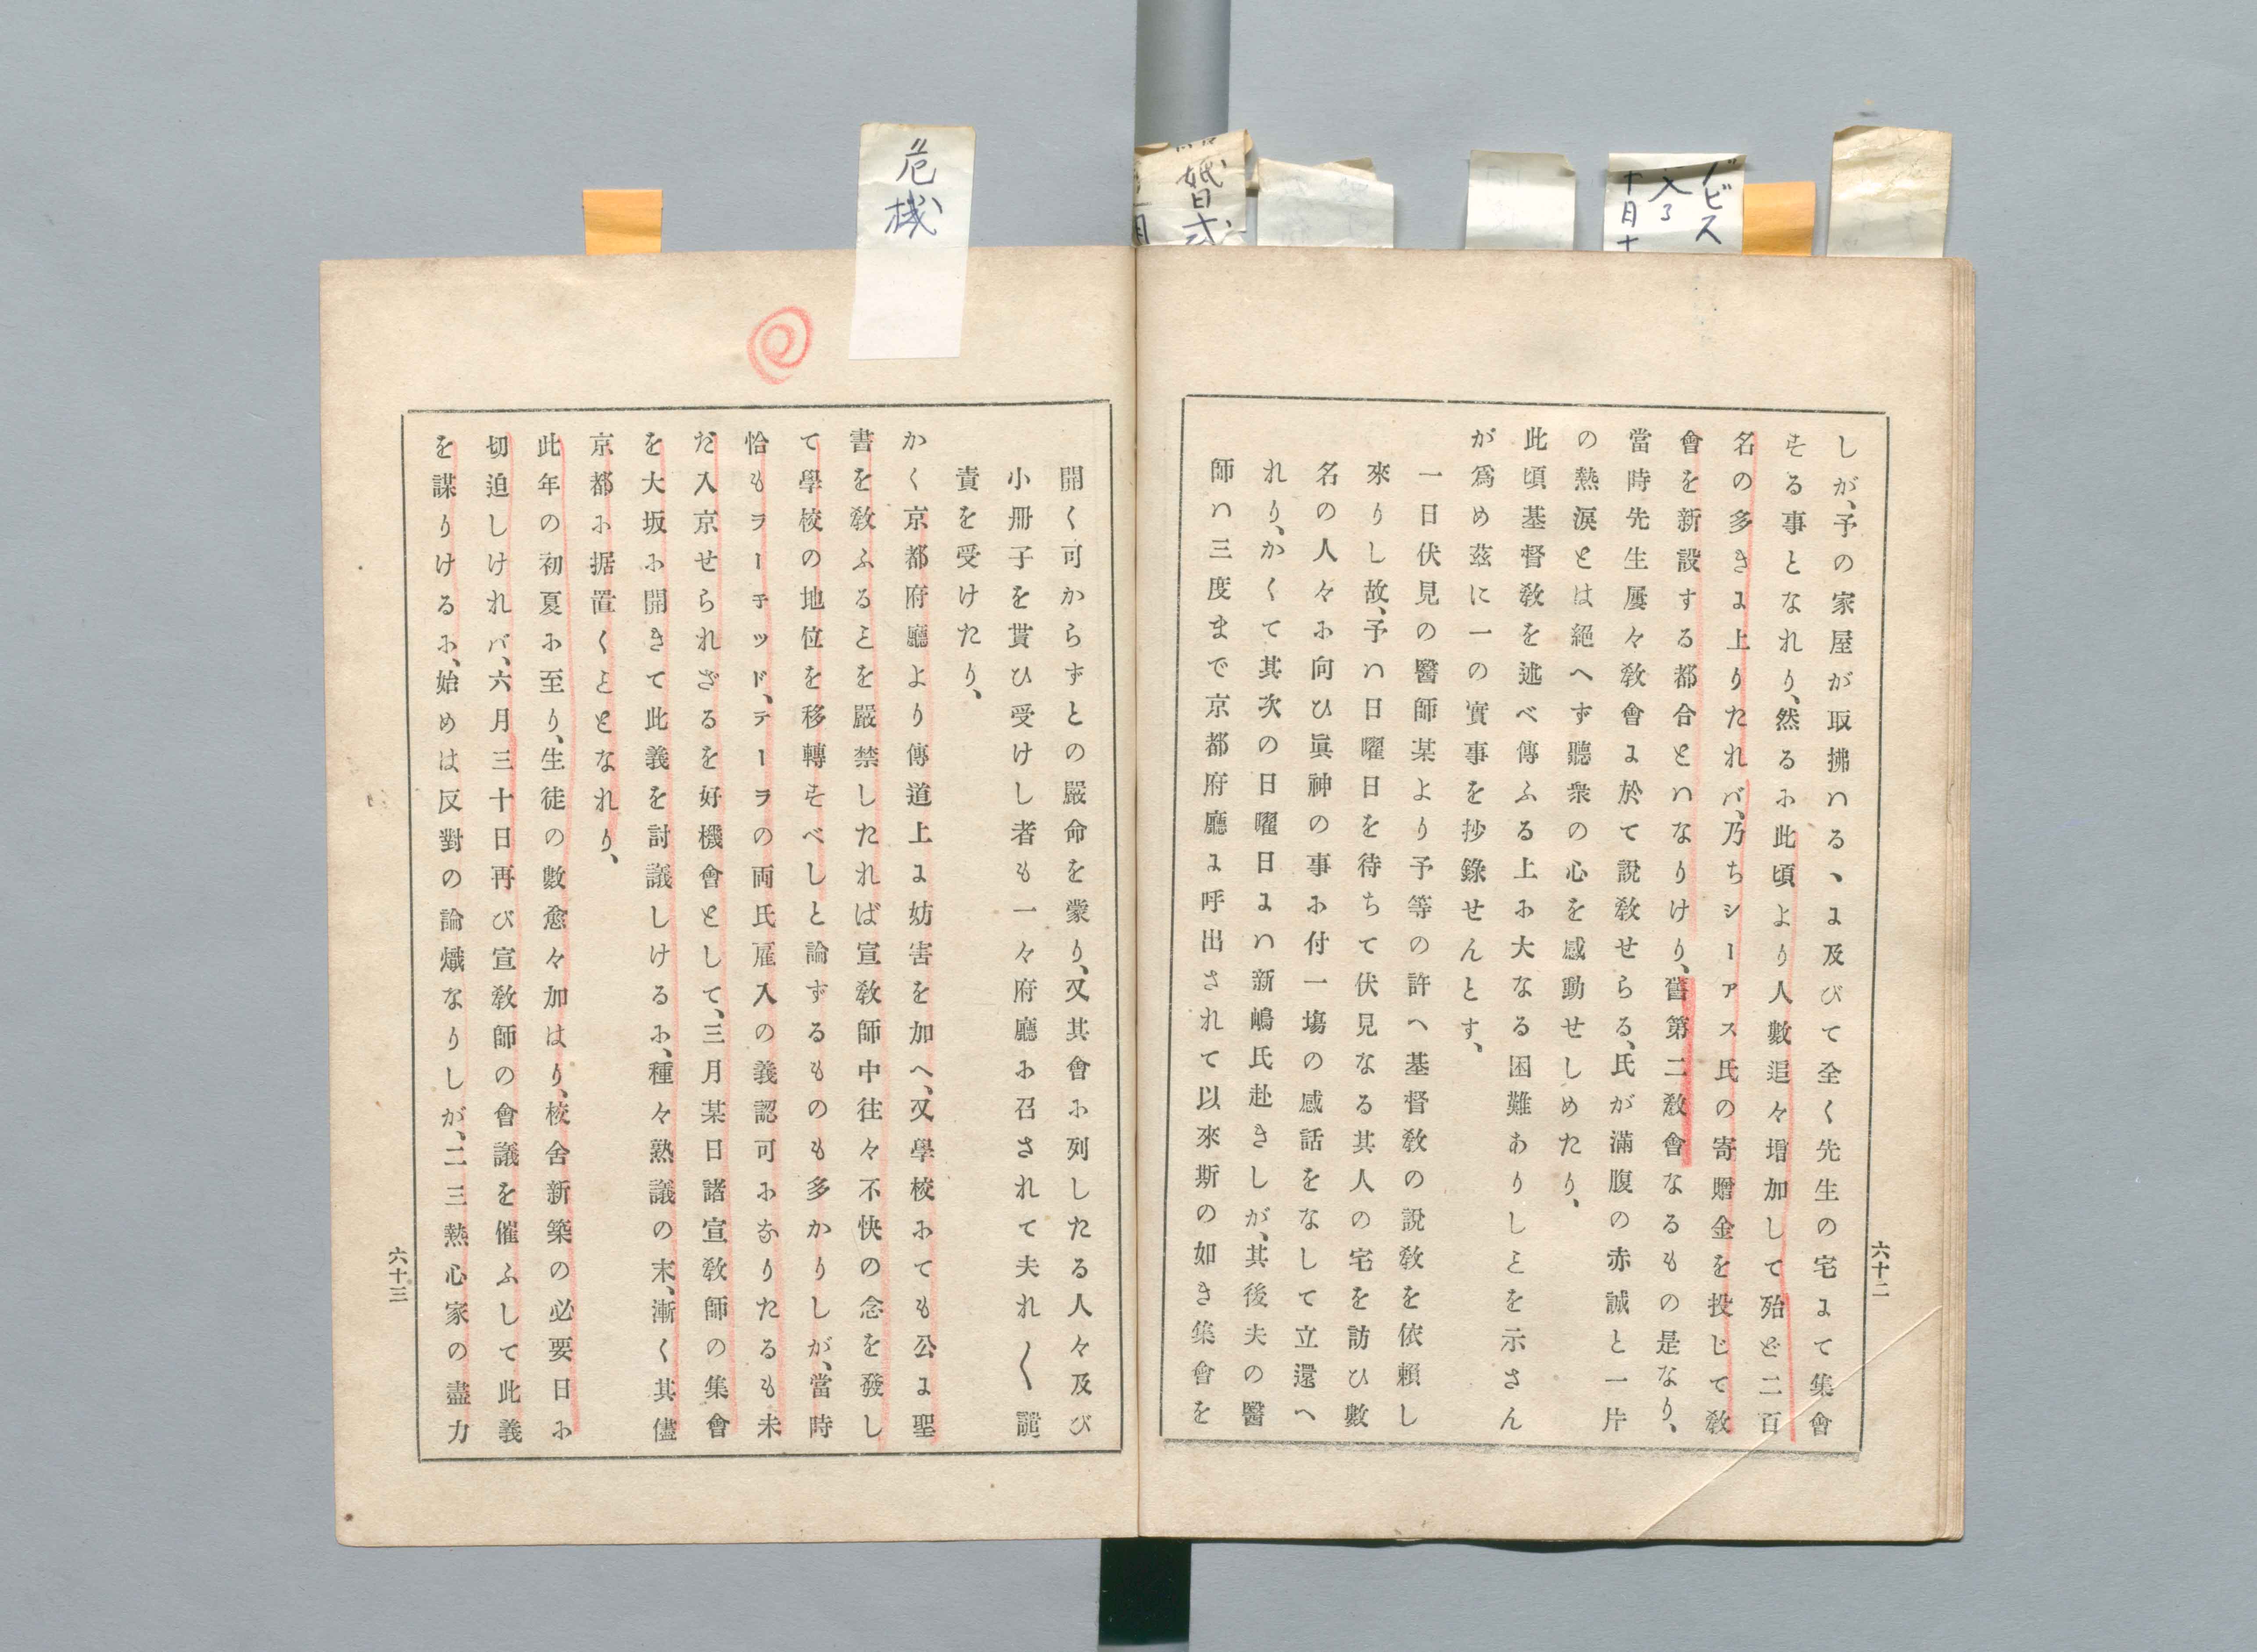 危機
婚式
ビス
入る
十月十
しが、予の家屋が取拂ハるゝに及びて全く先生の宅にて集會
する事となれり、然るに此頃より人數追々増加して殆ど二百
名の多きに上りたれバ、乃ちシーアス氏の寄贈金を投じて敎
會を新設する都合とハなりけり、舊第二敎會なるもの是なり、
當時先生屢々敎會に於て說敎せらる、氏が滿腹の赤誠と一片
の熱淚とは絕へず聽衆の心を感動せしめたり、
此頃基督敎を述べ傳ふる上に大なる困難ありしヿを示さん
が爲め茲に一の實事を抄錄せんとす、
一日伏見の醫師某より予等の許へ基督敎の說敎を依賴し
來りし故、予ハ日曜日を待ちて伏見なる其人の宅を訪ひ數
名の人々に向ひ眞神の事に付一塲の感話をなして立還へ
れり、かくて其次の日曜日にハ新嶋氏赴きしが、其後夫の醫
師ハ三度まで京都府廳に呼出されて以來斯の如き集會を
六十二
開く可からずとの嚴命を蒙り、又其會に列したる人々及び
小冊子を貰ひ受けし者も一々府廳に召されて夫れ〱譴
責を受けたり、
かく京都府廳より傳道上に妨害を加へ、又學校にても公に聖
書を敎ふるヿを嚴禁したれば宣敎師中往々不快の念を發し
て學校の地位を移轉すべしと論ずるものも多かりしが、當時
恰もラーチッド、テーラの両氏雇入の義認可になりたるも未
だ入京せられざるを好機會として、三月某日諸宣敎師の集會
を大坂に開きて此義を討議しけるに、種々熟議の末、漸く其儘
京都に据置くヿとなれり、
此年の初夏に至り、生徒の數愈々加はり、校舍新築の必要日に
切迫しけれバ、六月三十日再び宣敎師の會議を催ふして此義
を謀りけるに、始めは反對の論熾なりしが、二三熱心家の盡力
六十三